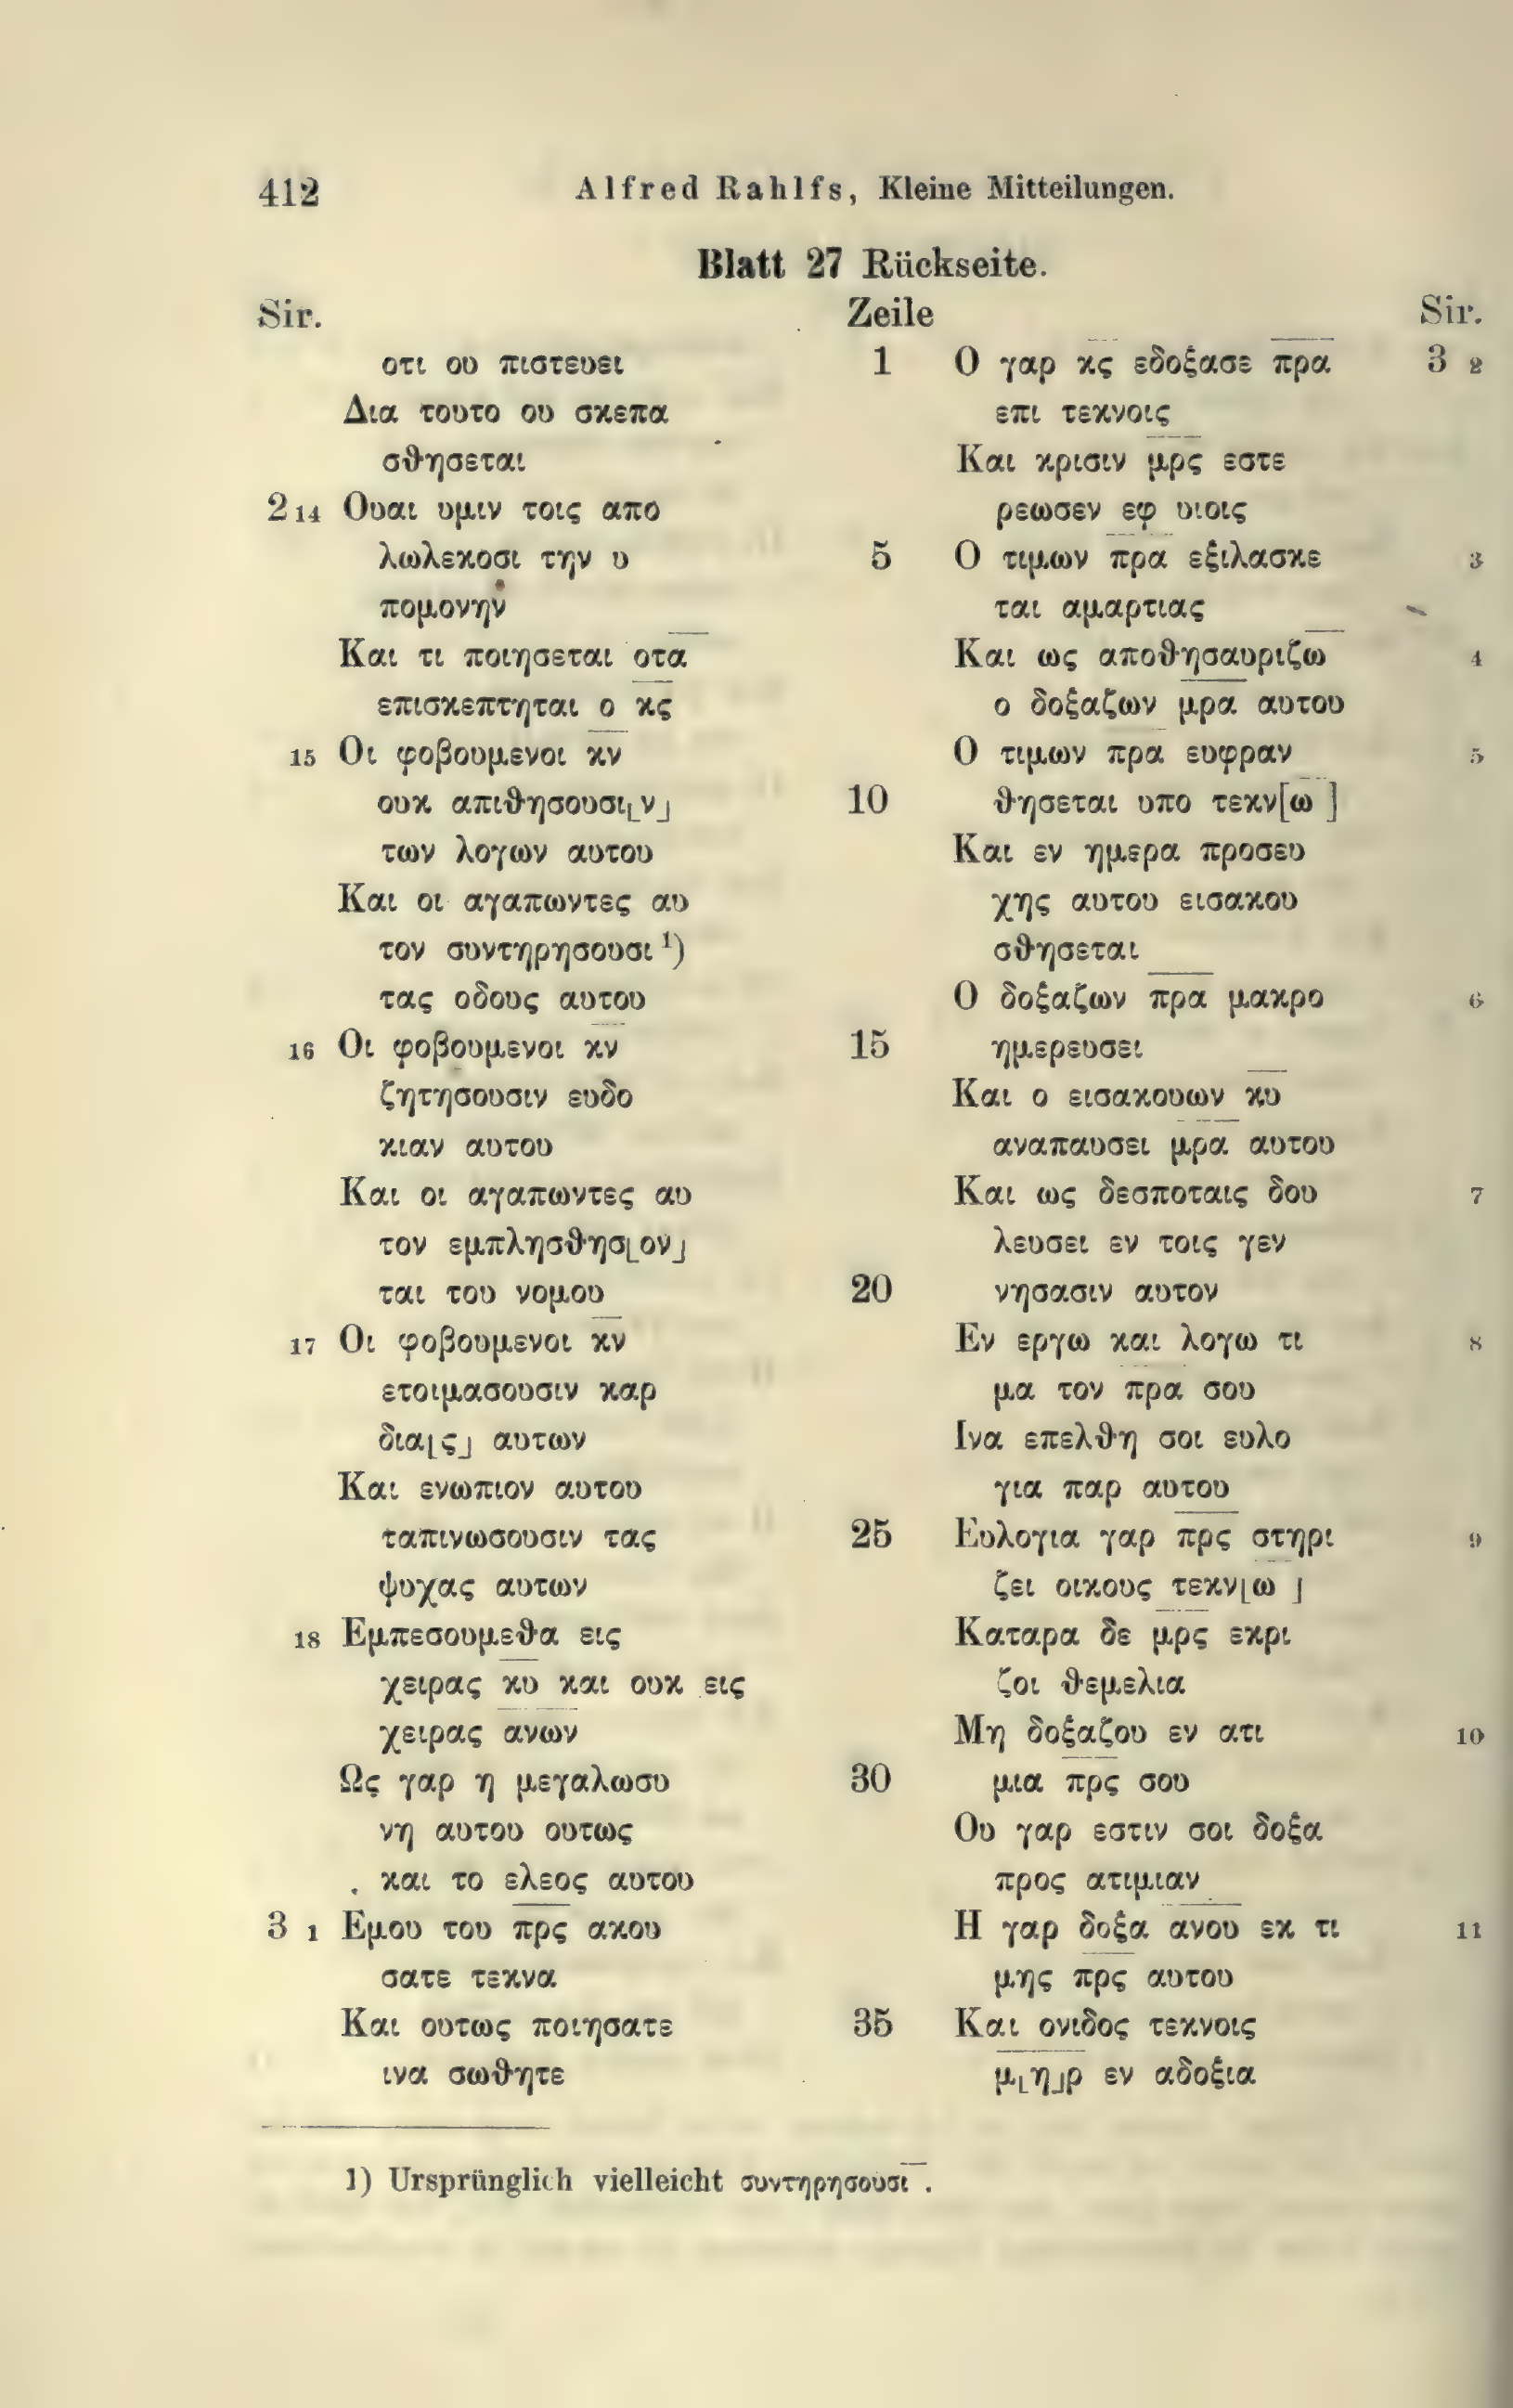 412 Alfred Rahlfs, Kleine Mitteilungen.
Blatt 27 Rückseite.
Sir. Zeile Sir.
οτι ου πιστευει
Δια τουτο ου σκεπα
σθησεται
2 14 Ουαι υμιν τοις απο
λωλεκοσι την υ
πομονην
Και τι ποιησεται οτα̅
επισκεπτηται ο κ̅ς̅
15 Οι φοβουμενοι κ̅ν̅
ουκ απιθησουσι⌊ν⌋
των λογων αυτου
Και οι αγαπωντες αυ
τον συντηρησουσι ¹)
τας οδους αυτου
16 Οι φοβουμενοι κ̅ν̅
ζητησουσιν ευδο
κιαν αυτου
Και οι αγαπωντες αυ
τον εμπλησθησ⌊ον⌋
ται του νομου
17 Οι φοβουμενοι κ̅ν̅
ετοιμασουσιν καρ
δια⌊ς⌋ αυτων
Και ενωπιον αυτου
ταπινωσουσιν τας
ψυχας αυτων
18 Εμπεσουμεθα εις
χειρας κ̅υ̅ και ουκ εις
χειρας α̅ν̅ω̅ν̅
Ως γαρ η μεγαλωσυ
νη αυτου ουτως
και το ελεος αυτου
3 1 Εμου του π̅ρ̅ς̅ ακου
σατε τεκνα
Και ουτως ποιησατε
ινα σωθητε
1 Ο γαρ κ̅ς̅ εδοξασε π̅ρ̅α̅ 3 2
επι τεκνοις
Και κρισιν μ̅ρ̅ς̅ εστε
ρεωσεν εφ υιοις
5 Ο τιμων π̅ρ̅α̅ εξιλασκε 3
ται αμαρτιας
Και ως αποθησαυριζω̅ 4
ο δοξαζων μ̅ρ̅α̅ αυτου
Ο τιμων π̅ρ̅α̅ ευφραν 5
10 θησεται υπο τεκν[ω̅ ]
Και εν ημερα προσευ
χης αυτου εισακου
σθησεται
Ο δοξαζων π̅ρ̅α̅ μακρο 6
15 ημερευσει
Και ο εισακουων κ̅υ̅
αναπαυσει μ̅ρ̅α̅ αυτου
Και ως δεσποταις δου 7
λευσει εν τοις γεν
20 νησασιν αυτον
Εν εργω και λογω τι 8
μα τον π̅ρ̅α̅ σου
Ινα επελθη σοι ευλο
για παρ αυτου
25 Ευλογια γαρ π̅ρ̅ς̅ στηρι 9
ζει οικους τεκν⌊ω̅ ⌋
Καταρα δε μ̅ρ̅ς̅ εκρι
ζοι θεμελια
Μη δοξαζου εν ατι 10
30 μια π̅ρ̅ς̅ σου
Ου γαρ εστιν σοι δοξα
προς ατιμιαν
Η γαρ δοξα α̅ν̅ο̅υ̅ εκ τι 11
μης π̅ρ̅ς̅ αυτου
35 Και ονιδος τεκνοις
μ̅⌊η̅⌋ρ̅ εν αδοξια
1) Ursprünglich vielleicht συντηρησουσι̅ .